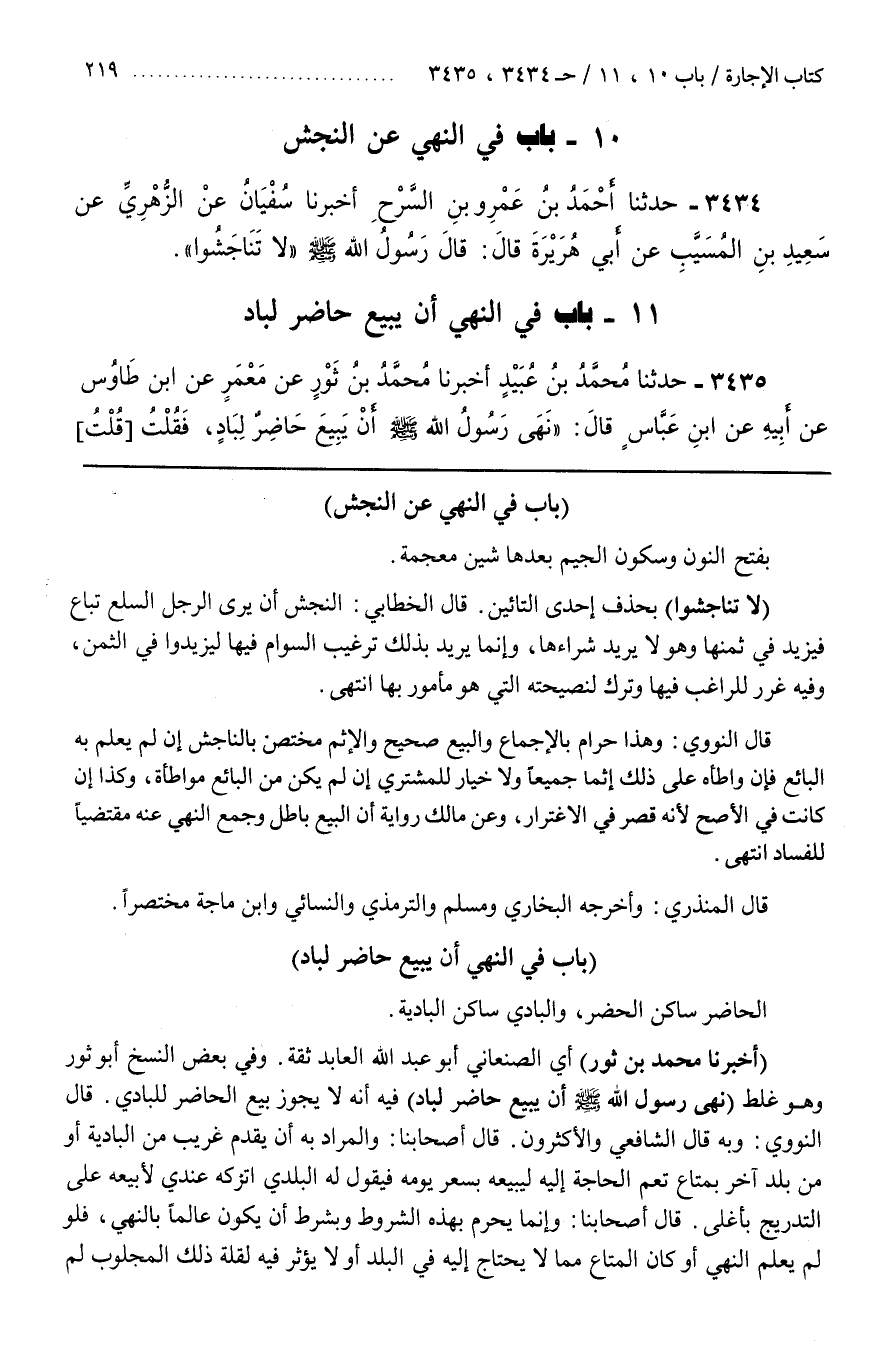 كتاب الإجارة / باب ١٠ ، ١١ / حـ ٣٤٣٤ ، ٣٤٣٥ ................................ ٢١٩
١٠ - باب في النهي عن النجش
٣٤٣٤ - حدثنا أَحْمَدُ بنُ عَمْرِو بنِ السَّرْحِ أخبرنا سُفْيَانُ عنْ الزُّهْرِيِّ عن
سَعِيدِ بنِ المُسَيَّبِ عن أَبي هُرَيْرَةَ قالَ: قالَ رَسُولُ الله ﷺ «لا تَنَاجَشُوا».
١١ - باب في النهي أن يبيع حاضر لباد
٣٤٣٥ - حدثنا مُحمَّدُ بنُ عُبَيْدٍ أخبرنا مُحمَّدُ بنُ ثَوْرٍ عن مَعْمَرٍ عن ابن طَاوُس
عن أَبِيهِ عن ابنِ عَبَّاسٍ قالَ: «نَهَى رَسُولُ الله ﷺ أَنْ يَبِيعَ حَاضِرٌ لِبَادٍ، فَقُلْتُ [قُلْتُ]
(باب في النهي عن النجش)
بفتح النون وسكون الجيم بعدها شين معجمة.
(لا تناجشوا) بحذف إحدى التائين. قال الخطابي: النجش أن يرى الرجل السلع تباع
فيزيد في ثمنها وهو لا يريد شراءها، وإنما يريد بذلك ترغيب السوام فيها ليزيدوا في الثمن،
وفيه غرر للراغب فيها وترك لنصيحته التي هو مأمور بها انتهى.
قال النووي: وهذا حرام بالإجماع والبيع صحيح والإثم مختصن بالناجش إن لم يعلم به
البائع فإن واطأه على ذلك إثما جميعاً ولا خيار للمشتري إن لم يكن من البائع مواطأة، وكذا إن
كانت في الأصح لأنه قصر في الاغترار، وعن مالك رواية أن البيع باطل وجمع النهي عنه مقتضياً
للفساد انتهى.
قال المنذري: وأخرجه البخاري ومسلم والترمذي والنسائي وابن ماجة مختصراً.
(باب في النهي أن يبيع حاضر لباد)
الحاضر ساكن الحضر، والبادي ساكن البادية.
(أخبرنا محمد بن ثور) أي الصنعاني أبو عبد الله العابد ثقة. وفي بعض النسخ أبو ثور
وهـو غلط (نهى رسول الله ﷺ أن يبيع حاضر لباد) فيه أنه لا يجوز بيع الحاضر للبادي. قال
النووي: وبه قال الشافعي والأكثرون. قال أصحابنا: والمراد به أن يقدم غريب من البادية أو
من بلد آخر بمتاع تعم الحاجة إليه ليبيعه بسعر يومه فيقول له البلدي اتركه عندي لأبيعه على
التدريج بأغلى. قال أصحابنا: وإنما يحرم بهذه الشروط وبشرط أن يكون عالماً بالنهي، فلو
لم يعلم النهي أو كان المتاع مما لا يحتاج إليه في البلد أو لا يؤثر فيه لقلة ذلك المجلوب لم